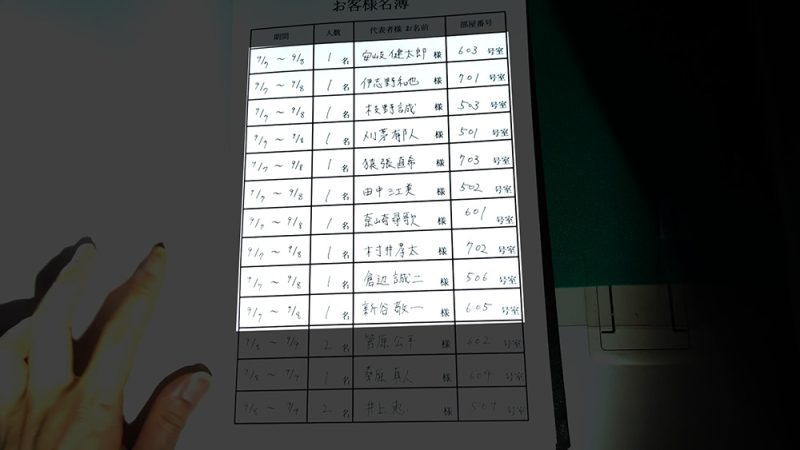 お客様名簿
期間 人数 代表者様 お名前 部屋番号
9/7 ~ 9/8 1 名 安岐健太郎 様 603 号室
9/7 ~ 9/8 1 名 伊志野和也 様 701 号室
9/7 ~ 9/8 1 名 枝野誠 様 503 号室
9/7 ~ 9/8 1 名 刈茅郁人 様 501 号室
9/7 ~ 9/8 1 名 猿張直希 様 703 号室
9/7 ~ 9/8 1 名 田中三江美 様 502 号室
9/7 ~ 9/8 1 名 様 601 号室
9/7 ~ 9/8 1 名 村井孝太 様 702 号室
9/7 ~ 9/8 1 名 倉辺誠二 様 506 号室
9/7 ~ 9/8 1 名 新谷敬一 様 605 号室
9/8 ~ 9/9 2 名 菅原公平 様 602 号室
9/8 ~ 9/9 1 名 桑原真人 様 604 号室
9/8 ~ 9/9 2 名 井上恵 様 507 号室